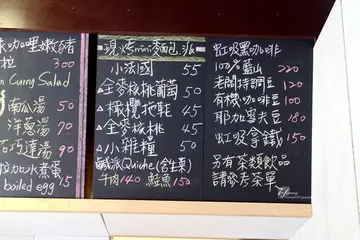 咖哩嫩豬
拉 300
Curry Salad
南瓜湯 50
洋蔥湯 70
巧達湯 90
拉加水煮蛋
boiled egg 15
現烤mini麵包
小法國 55
全麥核桃葡萄 50
橄欖拖鞋 45
全麥核桃 45
小雜糧 50
鹹派Quiche(含生菜)
牛肉140 鮭魚150
虹吸黑咖啡
100%藍山 220
老闆特調豆 120
有機咖啡豆 100
耶加雪夫豆 180
虹吸拿鐵 150
另有茶類飲品
請參考茶單